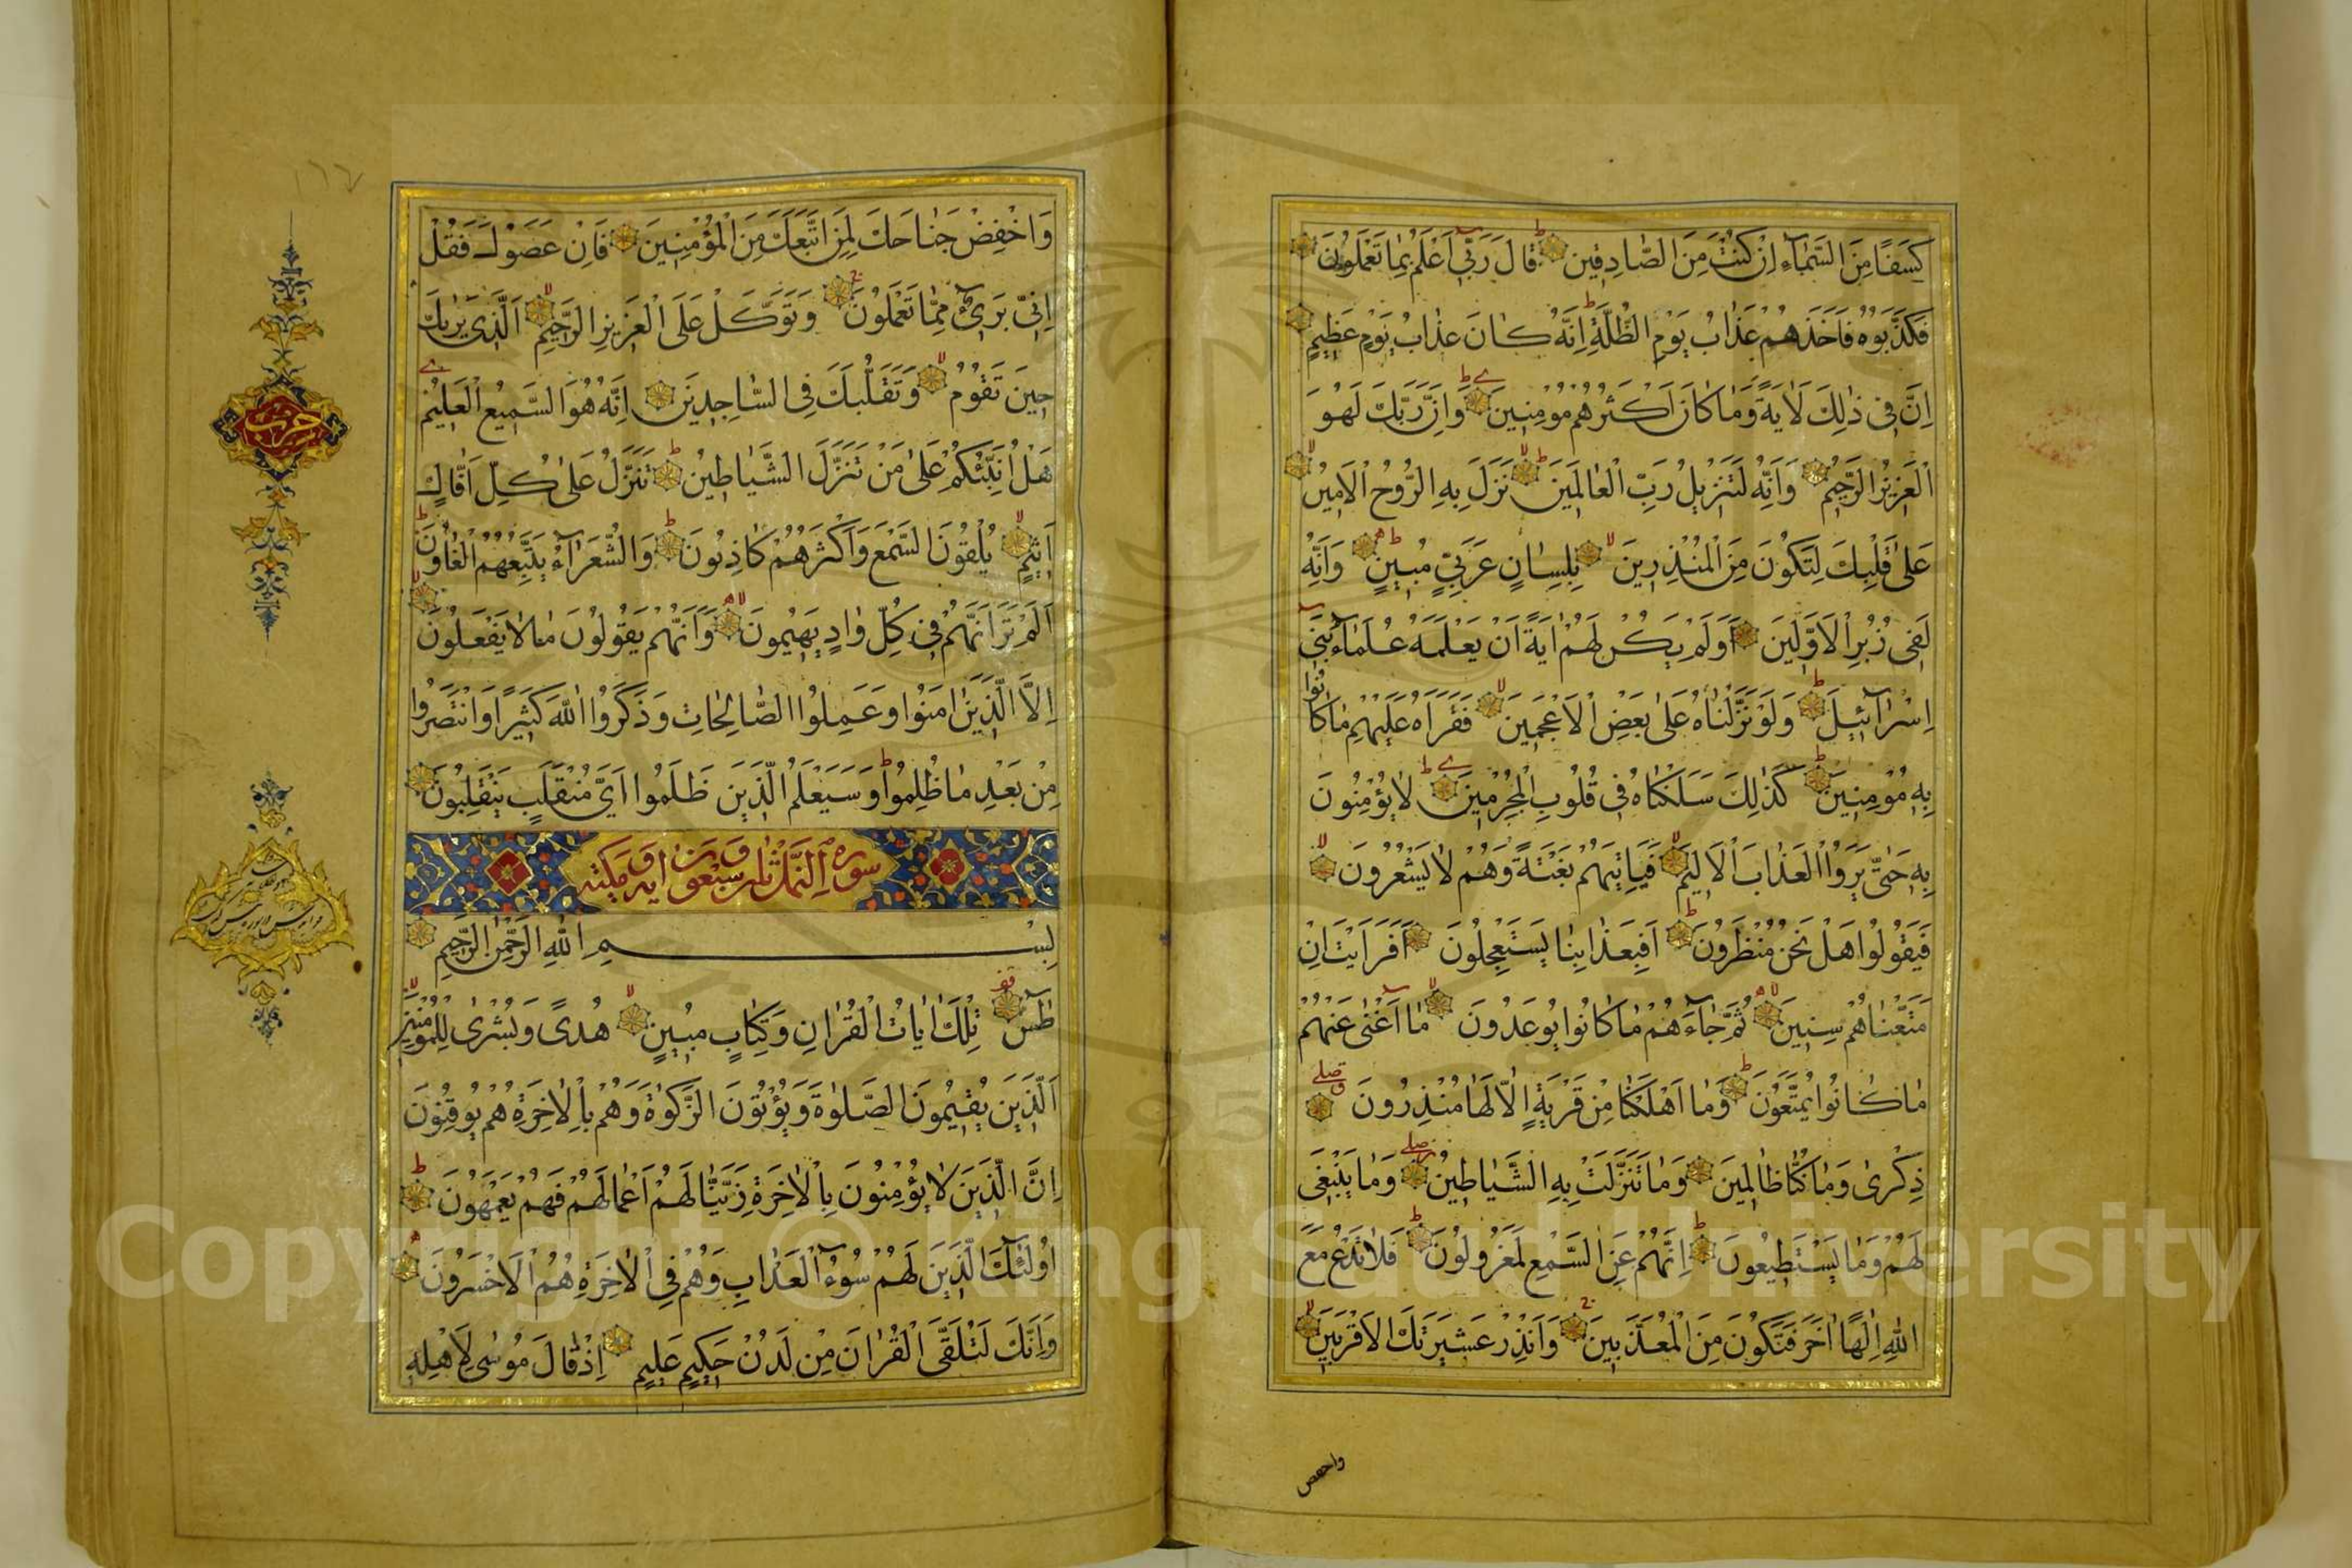 كِسَفًا مِنَ السَّمَاءِ اِنْ كُنْتَ مِنَ الصَّادِقِينَ قَالَ رَبِّي اَعْلَمُ بِمَا تَعْمَلُونَ
فَكَذَّبُوهُ فَاَخَذَهُمْ عَذَابُ يَوْمِ الظُّلَّةِ اِنَّهُ كَانَ عَذَابَ يَوْمٍ عَظِيمٍ
اِنَّ فِي ذٰلِكَ لَاٰيَةً وَمَا كَانَ اَكْثَرُهُمْ مُؤْمِنِينَ وَاِنَّ رَبَّكَ لَهُوَ
الْعَزِيزُ الرَّحِيمُ وَاِنَّهُ لَتَنْزِيلُ رَبِّ الْعَالَمِينَ نَزَلَ بِهِ الرُّوحُ الْاَمِينُ
عَلٰى قَلْبِكَ لِتَكُونَ مِنَ الْمُنْذِرِينَ بِلِسَانٍ عَرَبِيٍّ مُبِينٍ وَاِنَّهُ
لَفِي زُبُرِ الْاَوَّلِينَ اَوَلَمْ يَكُنْ لَهُمْ اٰيَةً اَنْ يَعْلَمَهُ عُلَمَاءُ بَنِي
اِسْرَائِيلَ وَلَوْ نَزَّلْنَاهُ عَلٰى بَعْضِ الْاَعْجَمِينَ فَقَرَاَهُ عَلَيْهِمْ مَا كَانُوا
بِهِ مُؤْمِنِينَ كَذٰلِكَ سَلَكْنَاهُ فِي قُلُوبِ الْمُجْرِمِينَ لَا يُؤْمِنُونَ
بِهِ حَتَّى يَرَوُا الْعَذَابَ الْاَلِيمَ فَيَاْتِيَهُمْ بَغْتَةً وَهُمْ لَا يَشْعُرُونَ
فَيَقُولُوا هَلْ نَحْنُ مُنْظَرُونَ اَفَبِعَذَابِنَا يَسْتَعْجِلُونَ اَفَرَاَيْتَ اِنْ
مَتَّعْنَاهُمْ سِنِينَ ثُمَّ جَاءَهُمْ مَا كَانُوا يُوعَدُونَ مَا اَغْنٰى عَنْهُمْ
مَا كَانُوا يُمَتَّعُونَ وَمَا اَهْلَكْنَا مِنْ قَرْيَةٍ اِلَّا لَهَا مُنْذِرُونَ
ذِكْرٰى وَمَا كُنَّا ظَالِمِينَ وَمَا تَنَزَّلَتْ بِهِ الشَّيَاطِينُ وَمَا يَنْبَغِي
لَهُمْ وَمَا يَسْتَطِيعُونَ اِنَّهُمْ عَنِ السَّمْعِ لَمَعْزُولُونَ فَلَا تَدْعُ مَعَ
اللّٰهِ اِلٰهًا اٰخَرَ فَتَكُونَ مِنَ الْمُعَذَّبِينَ وَاَنْذِرْ عَشِيرَتَكَ الْاَقْرَبِينَ
واخفض
وَاخْفِضْ جَنَاحَكَ لِمَنِ اتَّبَعَكَ مِنَ الْمُؤْمِنِينَ فَاِنْ عَصَوْكَ فَقُلْ
اِنِّي بَرِيءٌ مِمَّا تَعْمَلُونَ وَتَوَكَّلْ عَلَى الْعَزِيزِ الرَّحِيمِ اَلَّذِي يَرٰيكَ
حِينَ تَقُومُ وَتَقَلُّبَكَ فِي السَّاجِدِينَ اِنَّهُ هُوَ السَّمِيعُ الْعَلِيمُ
هَلْ اُنَبِّئُكُمْ عَلٰى مَنْ تَنَزَّلُ الشَّيَاطِينُ تَنَزَّلُ عَلٰى كُلِّ اَفَّاكٍ
اَثِيمٍ يُلْقُونَ السَّمْعَ وَاَكْثَرُهُمْ كَاذِبُونَ وَالشُّعَرَاءُ يَتَّبِعُهُمُ الْغَاوُونَ
اَلَمْ تَرَ اَنَّهُمْ فِي كُلِّ وَادٍ يَهِيمُونَ وَاَنَّهُمْ يَقُولُونَ مَا لَا يَفْعَلُونَ
اِلَّا الَّذِينَ اٰمَنُوا وَعَمِلُوا الصَّالِحَاتِ وَذَكَرُوا اللّٰهَ كَثِيرًا وَانْتَصَرُوا
مِنْ بَعْدِ مَا ظُلِمُوا وَسَيَعْلَمُ الَّذِينَ ظَلَمُوا اَيَّ مُنْقَلَبٍ يَنْقَلِبُونَ
سورة النمل ثلث وتسعون اية مكية
بِسْمِ اللّٰهِ الرَّحْمٰنِ الرَّحِيمِ
طٰسٓ تِلْكَ اٰيَاتُ الْقُرْاٰنِ وَكِتَابٍ مُبِينٍ هُدًى وَبُشْرٰى لِلْمُؤْمِنِينَ
اَلَّذِينَ يُقِيمُونَ الصَّلٰوةَ وَيُؤْتُونَ الزَّكٰوةَ وَهُمْ بِالْاٰخِرَةِ هُمْ يُوقِنُونَ
اِنَّ الَّذِينَ لَا يُؤْمِنُونَ بِالْاٰخِرَةِ زَيَّنَّا لَهُمْ اَعْمَالَهُمْ فَهُمْ يَعْمَهُونَ
اُولٰئِكَ الَّذِينَ لَهُمْ سُوءُ الْعَذَابِ وَهُمْ فِي الْاٰخِرَةِ هُمُ الْاَخْسَرُونَ
وَاِنَّكَ لَتُلَقَّى الْقُرْاٰنَ مِنْ لَدُنْ حَكِيمٍ عَلِيمٍ اِذْ قَالَ مُوسٰى لِاَهْلِهِ
حزب
Copyright © King Saud University